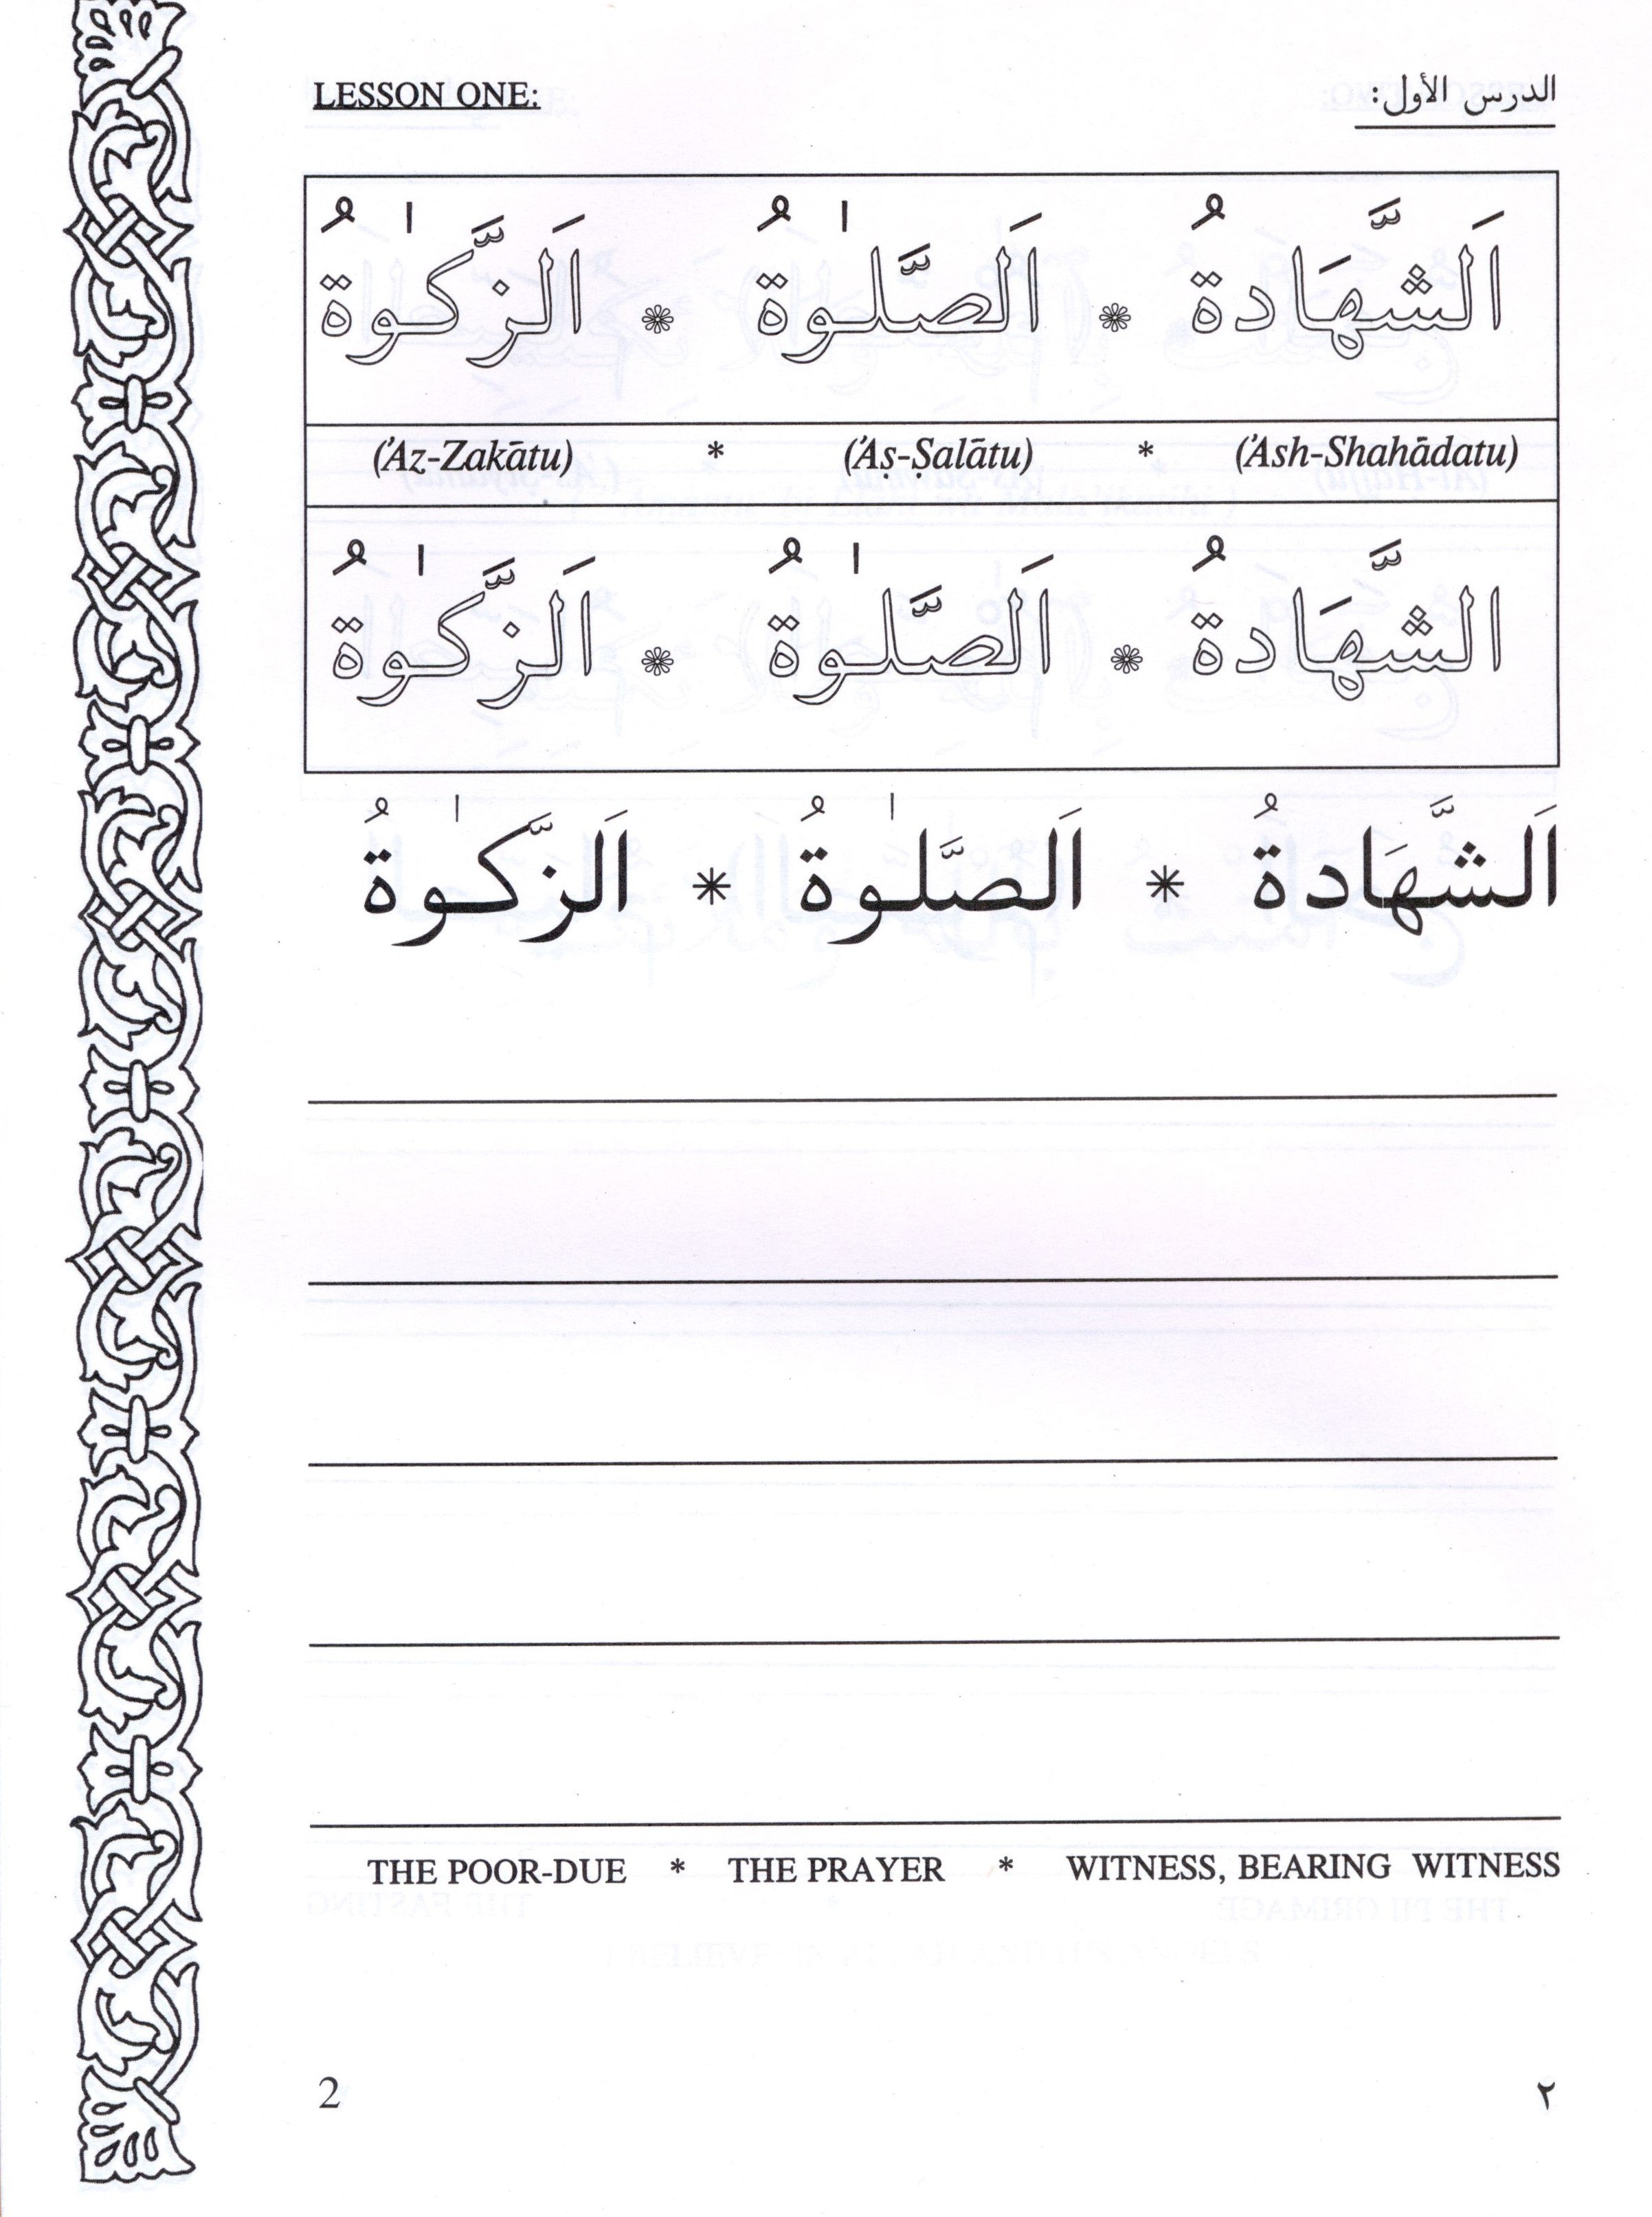 LESSON ONE: الدرس الأول:
اَلشَّهَادةُ * اَلصَّلٰوةُ * اَلزَّكٰوةُ
(’Az-Zakātu) * (’Aṣ-Ṣalātu) * (’Ash-Shahādatu)
الشَّهَادةُ * اَلصَّلٰوةُ * اَلزَّكٰوةُ
اَلشَّهَادةُ * اَلصَّلٰوةُ * اَلزَّكٰوةُ
THE POOR-DUE * THE PRAYER * WITNESS, BEARING WITNESS
2 ٢